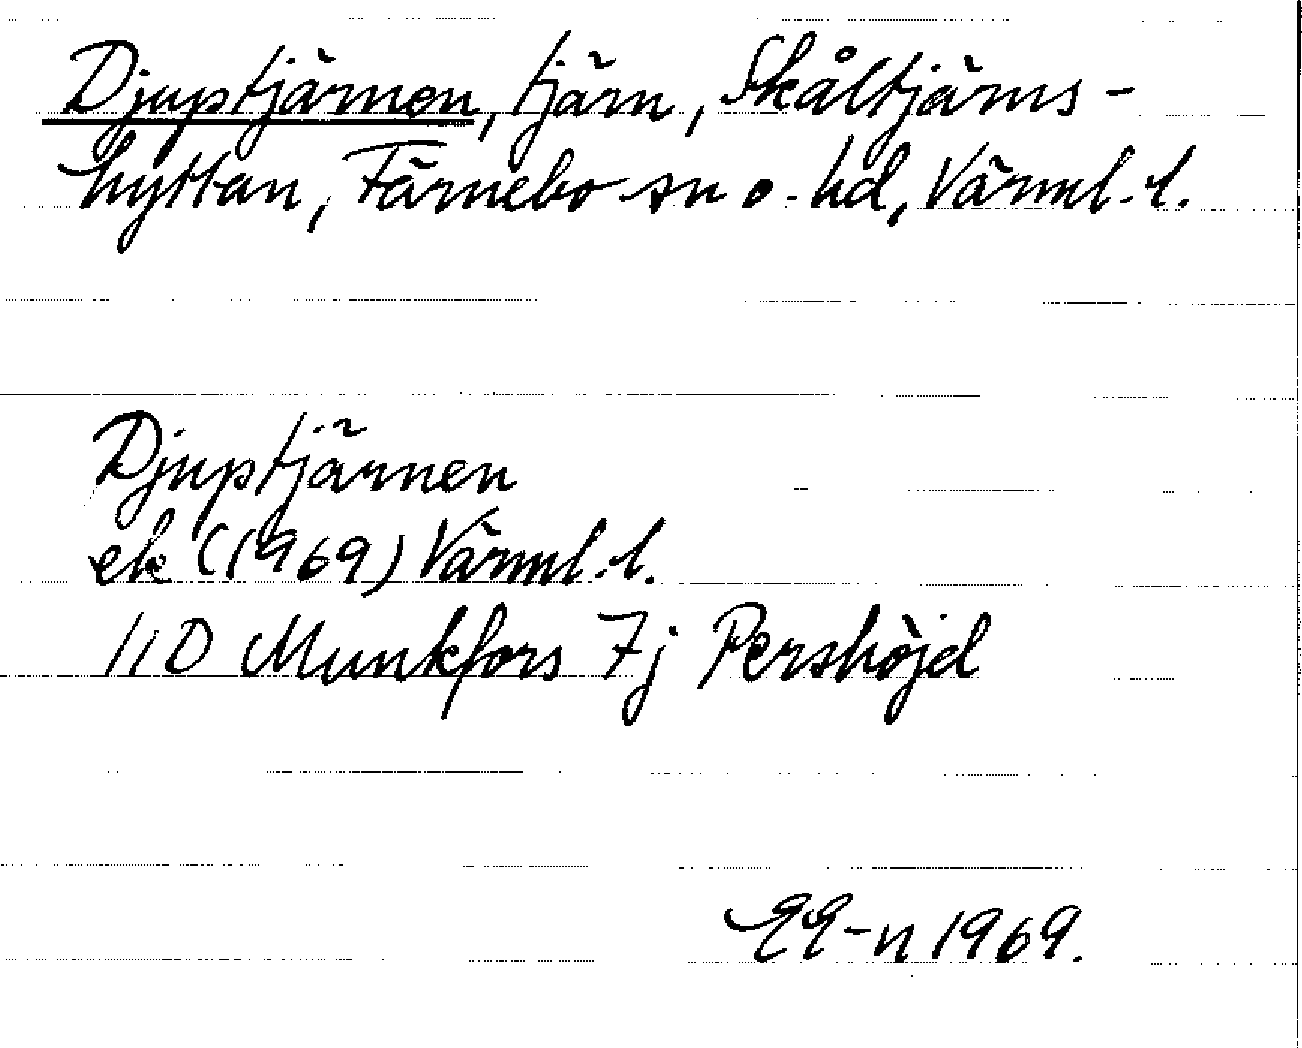 Djuptjärnen, tjärn, Skåltjärns-
hyttan, Färnebo sn o. hd, Värml. l.
Djuptjärnen
ek (1969) Värml. l.
11D Munkfors 7j Pershöjd
EE-n 1969.